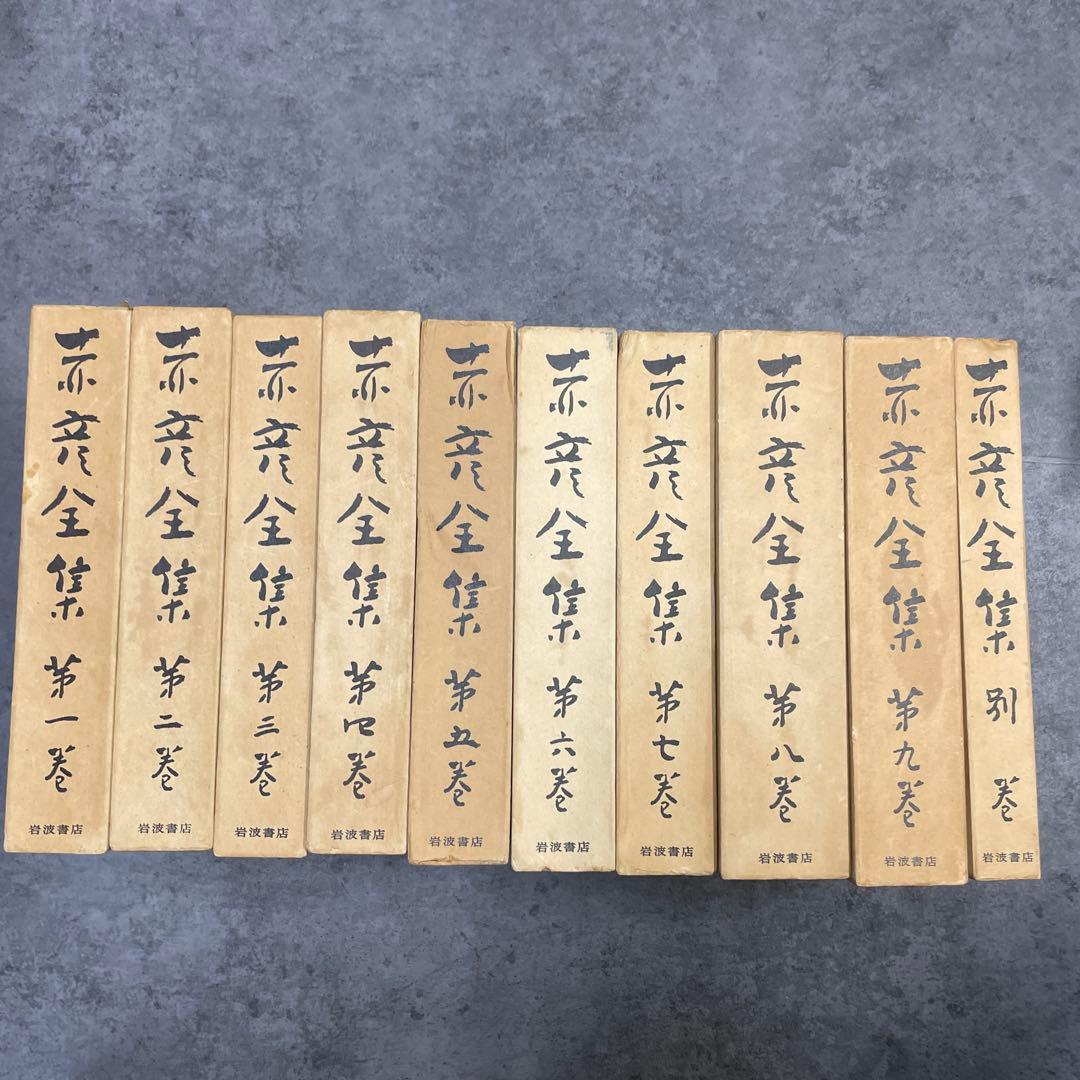 赤彦全集 第一巻
岩波書店
赤彦全集 第二巻
岩波書店
赤彦全集 第三巻
岩波書店
赤彦全集 第四巻
岩波書店
赤彦全集 第五巻
岩波書店
赤彦全集 第六巻
岩波書店
赤彦全集 第七巻
岩波書店
赤彦全集 第八巻
岩波書店
赤彦全集 第九巻
岩波書店
赤彦全集 別巻
岩波書店